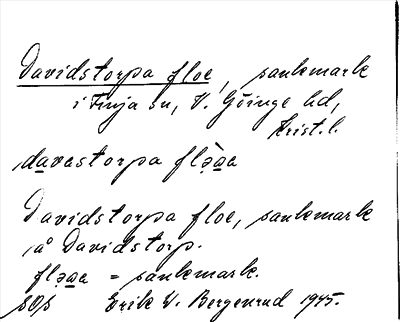 Davidstorpa floe, sankmark
i Finja sn, V. Göinge hd,
Krist. l.
davastorpa flə̀a̲a
Davidstorpa floe, sankmark
å Davidstorp.
fləa̲a = sankmark.
Erik W. Bergenrud 1945.